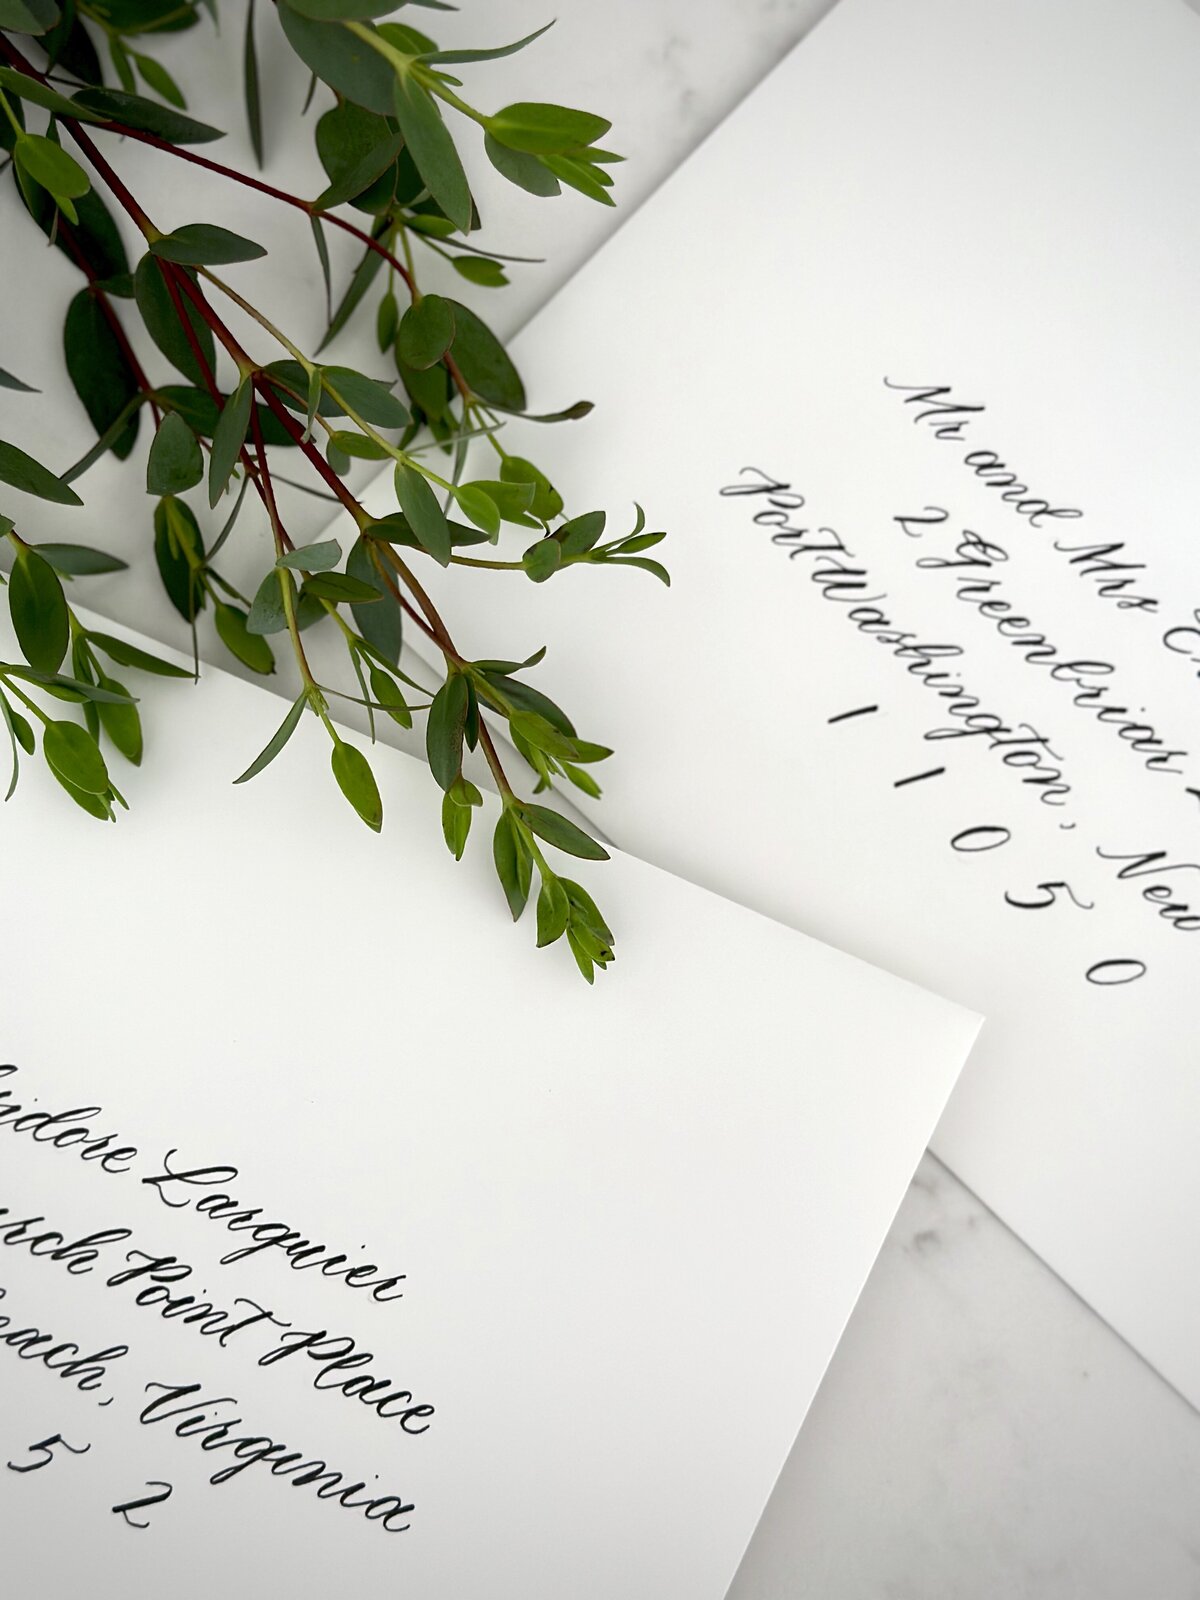 Mr and Mrs
2 Greenbriar
Port Washington, New
1 1 0 5 0
Larguier
Point Place
Virginia
5 2